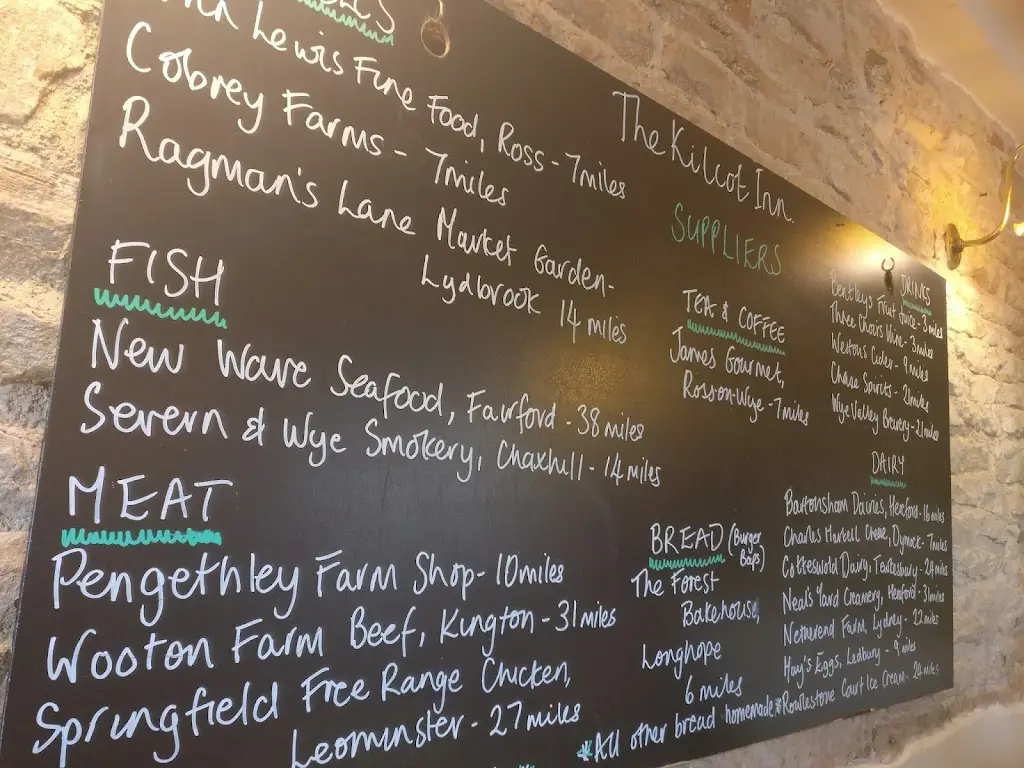 Lewis Fine Food, Ross - 7miles
Cobrey Farms - 7miles
Ragman's Lane Market Garden -
Lydbrook 14 miles
FISH
New Wave Seafood, Fairford - 38 miles
Severn & Wye Smokery, Chaxhill - 14 miles
MEAT
Pengethley Farm Shop - 10miles
Wooton Farm Beef, Kington - 31 miles
Springfield Free Range Chicken,
Leominster - 27 miles
The Kilcot Inn.
SUPPLIERS
TEA & COFFEE
James Gourmet,
Ross-on-Wye - 7 miles
BREAD (Burger
Baps)
The Forest
Bakehouse,
Longhope
6 miles
*All other bread homemade*
DRINKS
Bentleys Fruit Juice - 3 miles
Three Choirs Wine - 3 miles
Westons Cider - 9 miles
Chase Spirits - 21 miles
Wye Valley Brewery - 21 miles
DAIRY
Bartonsham Dairies, Hereford - 16 miles
Charles Martell Cheese, Dymock - 7miles
Cotteswold Dairy, Tewkesbury - 24 miles
Neal's Yard Creamery, Hereford - 31 miles
Netherend Farm, Lydney - 22 miles
Hay's Eggs, Ledbury - 9 miles
Rowlestone Court Ice Cream - 24 miles